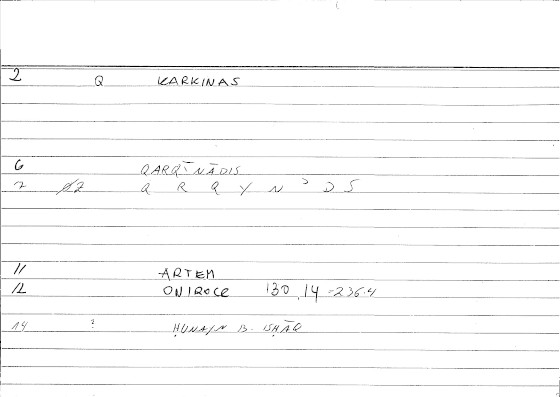 2 Q KARKINAS
6 QARQĪNĀDIS
7 12 Q R Q Y N ʾ D S
11 ARTEM
12 ONIROCR 130,14 = 236.4
14 ? ḤUNAIN B. ISḤĀQ